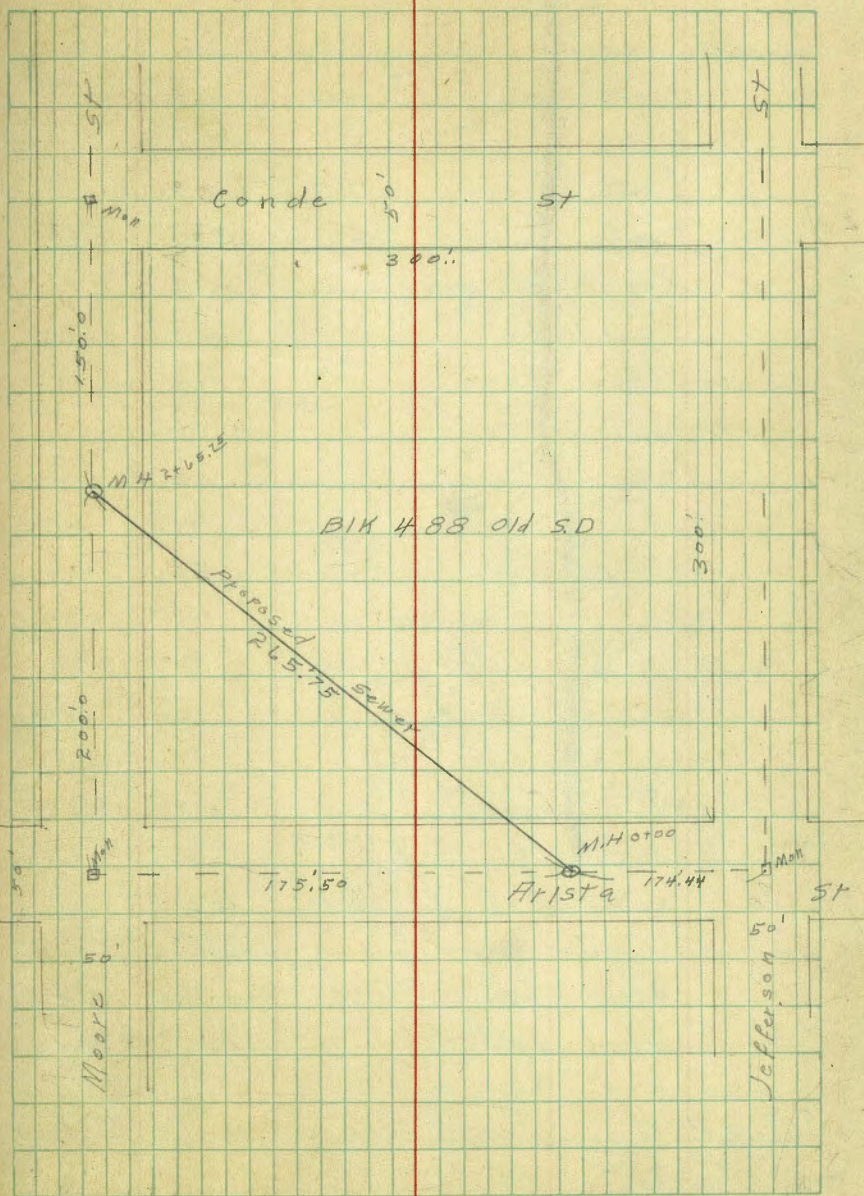 St
St
Mon
Conde 50' St
300'.
150.'0
M H 2+65.75
Blk 488 Old S.D
300'
Proposed
265.'75
Sewer
200.'0
M.H 0+00
Mon
Mon
50'
175.'50
Arista
174.'44
St
50'
50'
Moore
Jefferson